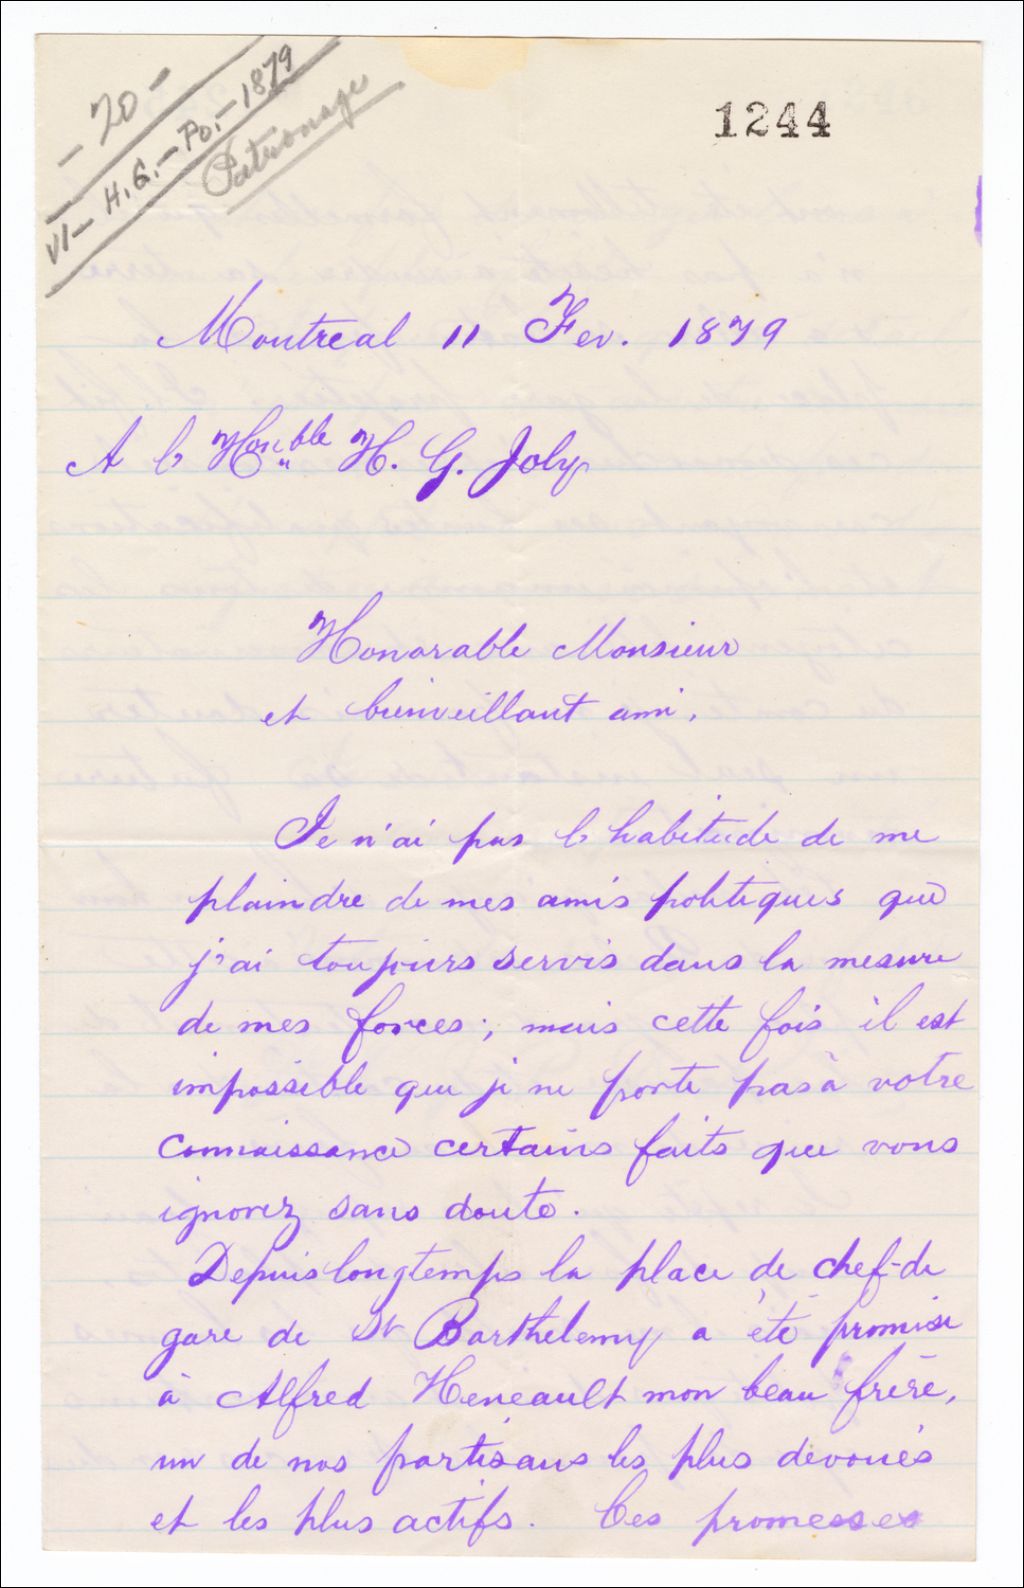 - 20 -
VI - H. G. - Po. - 1879
Patronage
1244
Montreal 11 Fev. 1879
A l' Hon.ble H. G. Joly
Honorable Monsieur
et bienveillant ami,
Je n'ai pas l'habitude de me
plaindre de mes amis politiques que
j'ai toujours servis dans la mesure
de mes forces; mais cette fois il est
impossible que je ne porte pas à votre
connaissance certains faits que vous
ignorez sans doute.
Depuis longtemps la place de chef-de
gare de St Barthelemy a été promise
à Alfred Heneault mon beau frère,
un de nos partisans les plus dévoués
et les plus actifs. Ces promesses